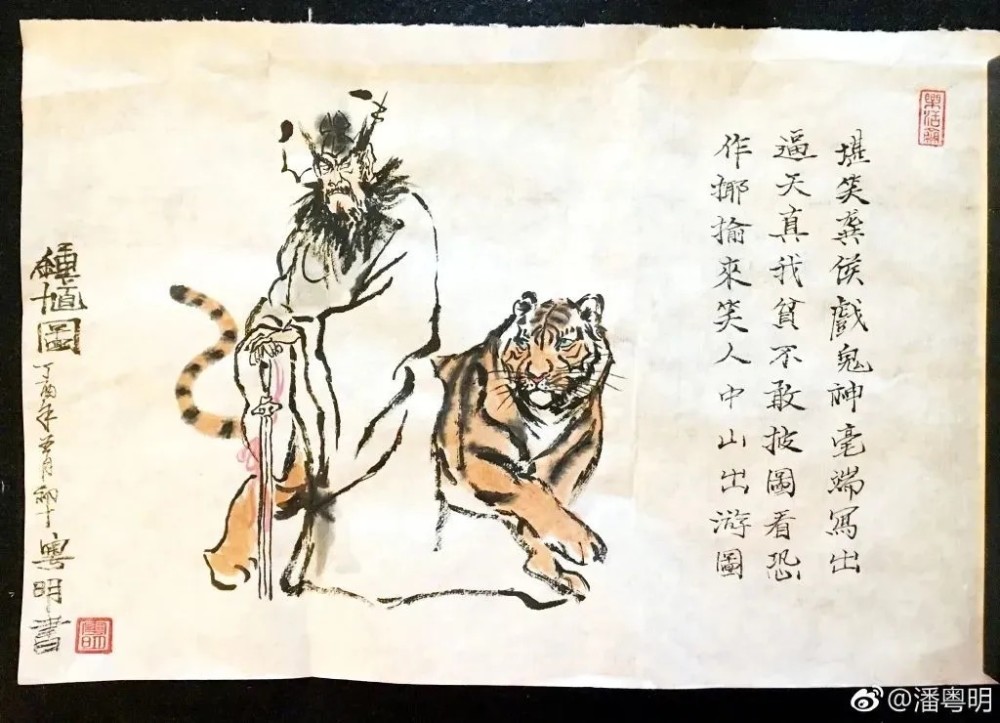 堪笑龔侯戲鬼神毫端寫出
逼天真我貧不敢披圖看恐
作揶揄來笑人中山出游圖
鍾馗圖
丁酉年月初十粵明書
@潘粤明